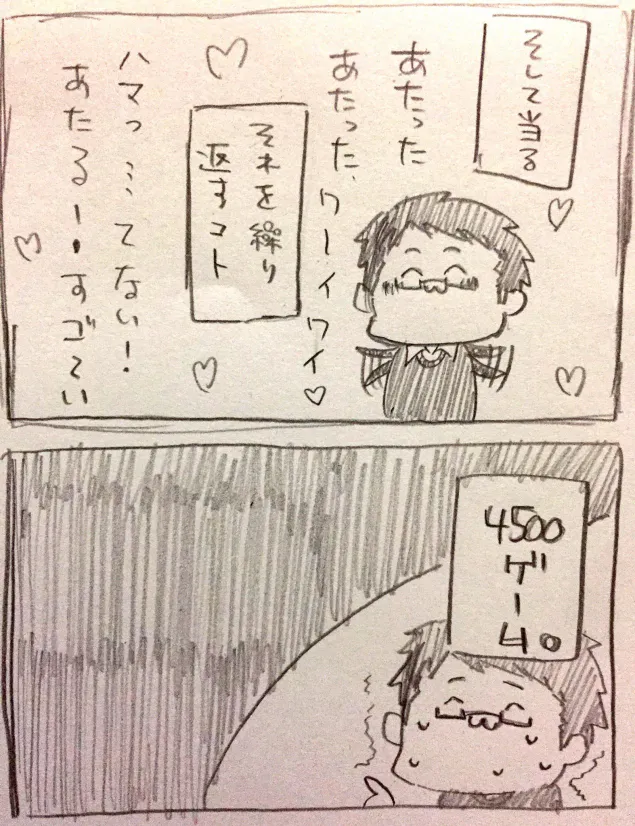 そして当る
あたった
あたった、
ワーイワイ♡
それを繰り
返すコト
ハマっ…てない!
あたるー!すごてい
4500
ゲーム。